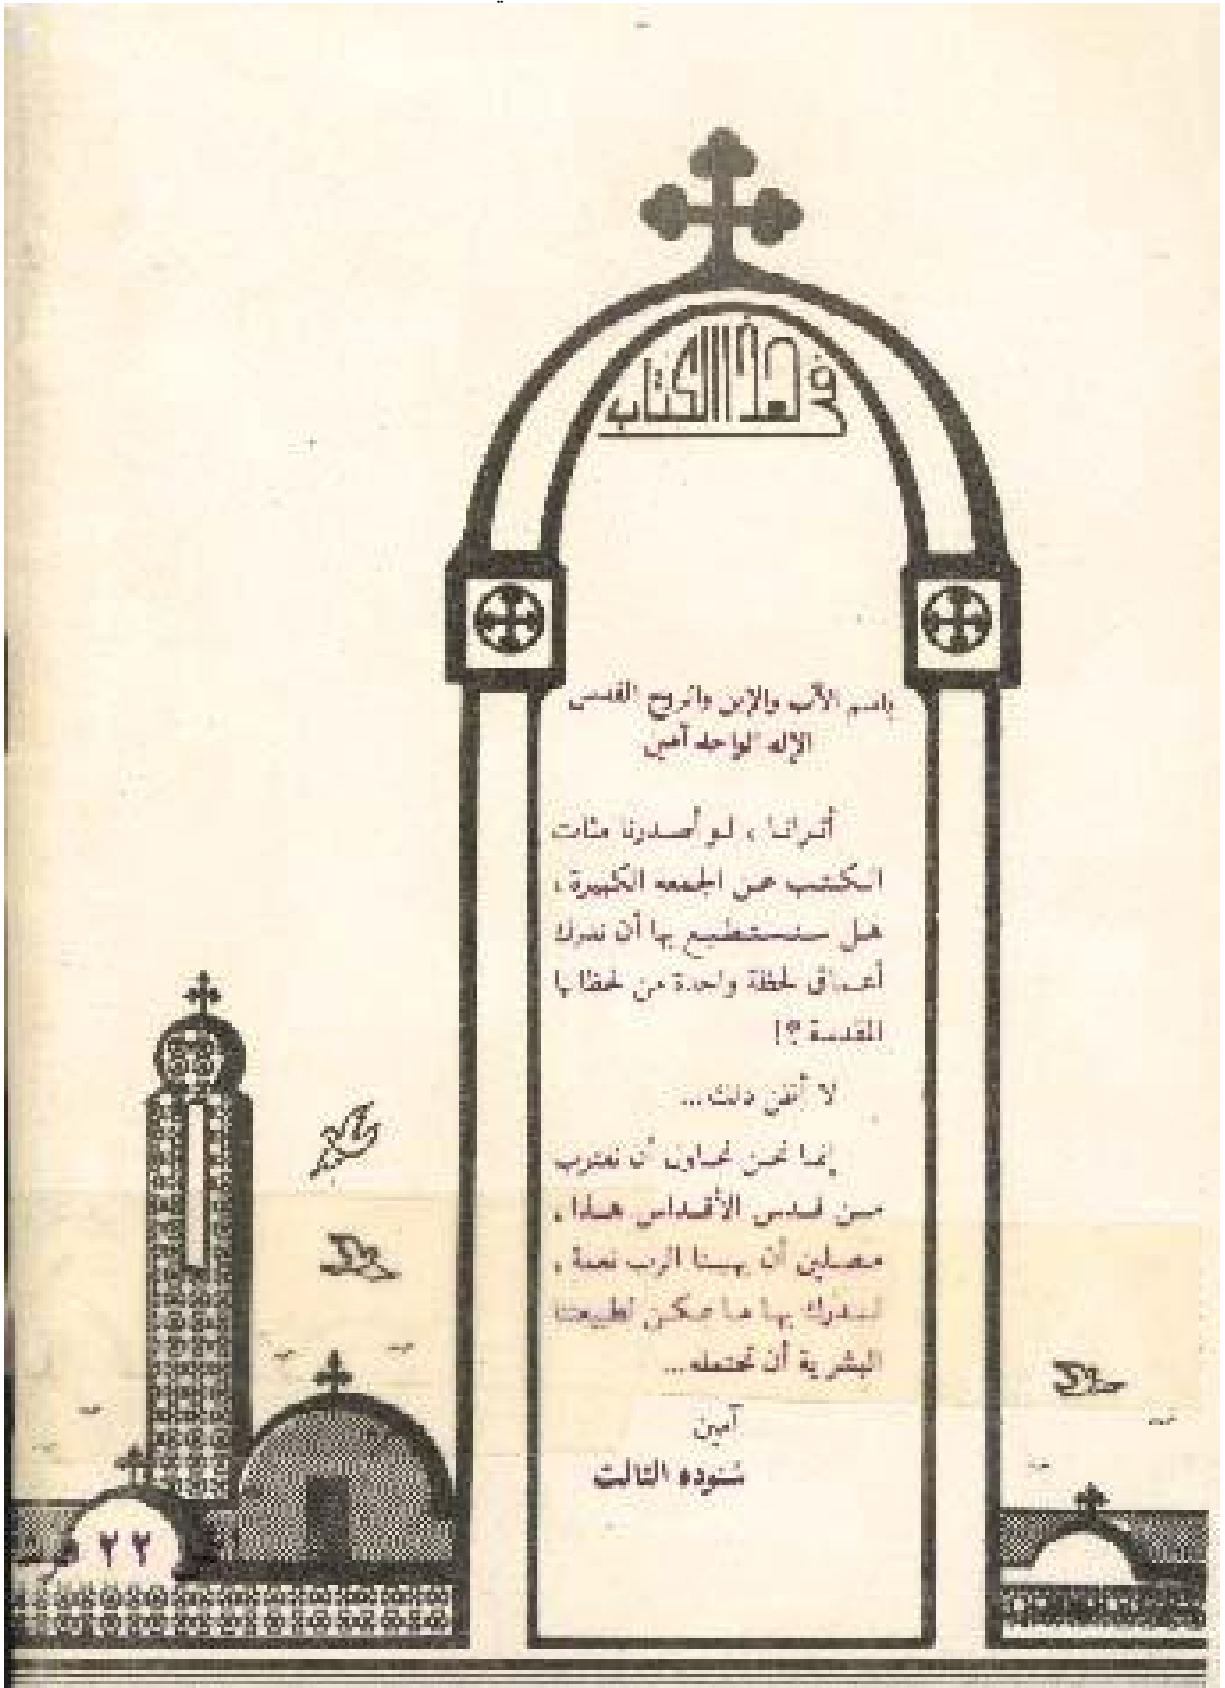 في هذا الكتاب
باسم الآب والإبن والروح القدس
الإله الواحد آمين
أترانا ، لو أصدرنا مئات
الكتب عن الجمعه الكبيرة ،
هل سنستطيع بها أن ندرك
أعماق لحظة واحدة من لحظاتها
المقدسة ؟!
لا أظن ذلك...
إنما نحن نحاول أن نقترب
من قدس الأقداس هذا ،
مصلين أن يهبنا الرب نعمة ،
لندرك بها ما يمكن لطبيعتنا
البشرية أن تحتمله...
آمين
شنوده الثالث
٢٢